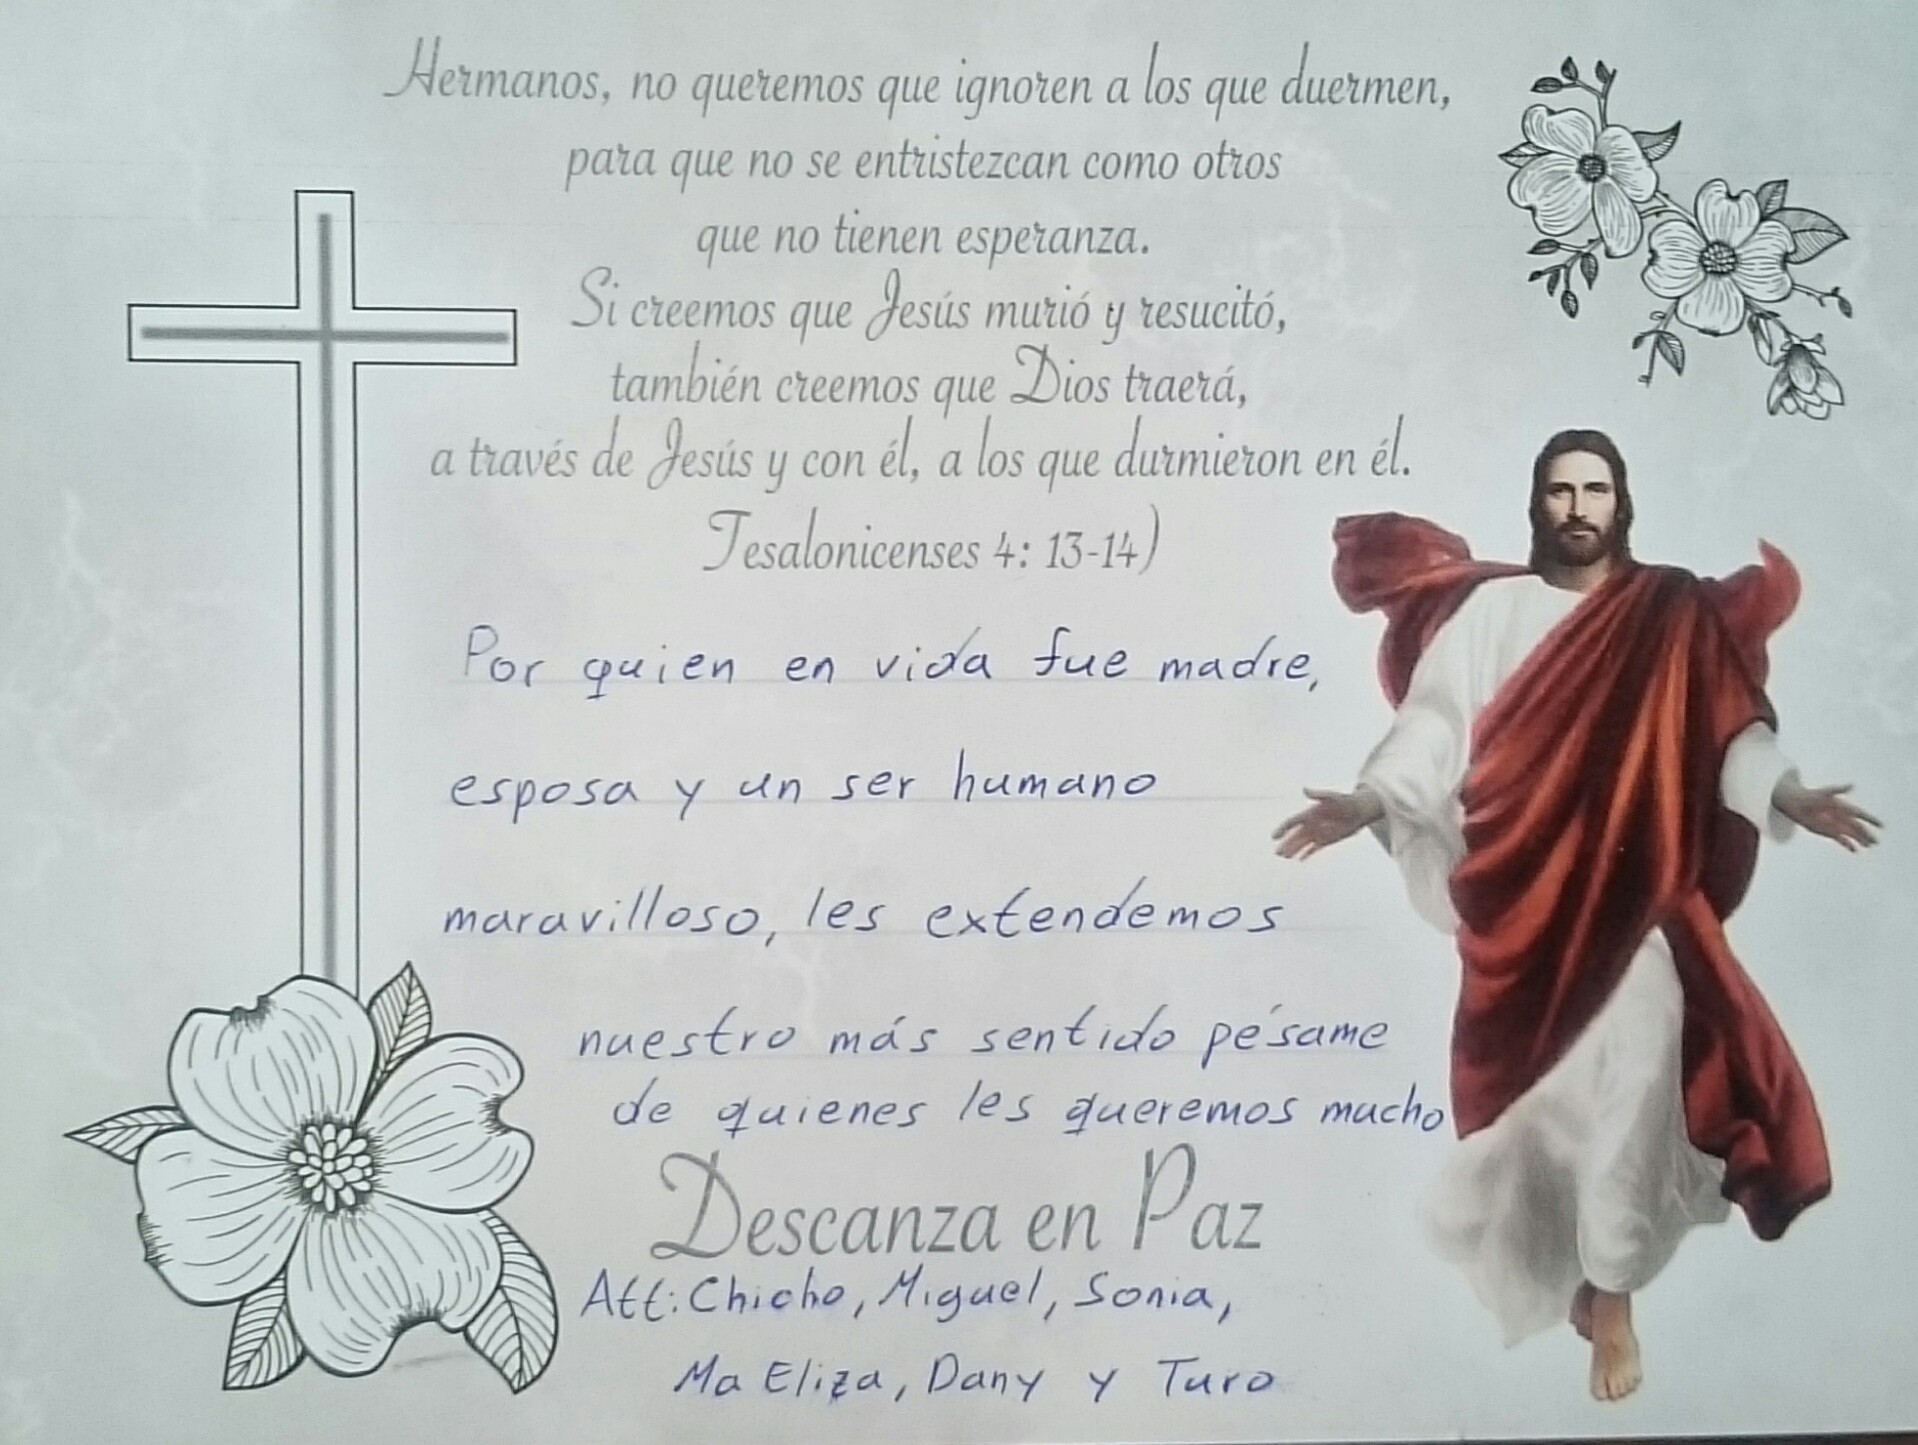 Hermanos, no queremos que ignoren a los que duermen,
para que no se entristezcan como otros
que no tienen esperanza.
Si creemos que Jesús murió y resucitó,
también creemos que Dios traerá,
a través de Jesús y con él, a los que durmieron en él.
Tesalonicenses 4: 13-14)
Por quien en vida fue madre,
esposa y un ser humano
maravilloso, les extendemos
nuestro más sentido pésame
de quienes les queremos mucho
Descanza en Paz
Att: Chicho, Miguel, Sonia,
Ma Eliza, Dany y Turo